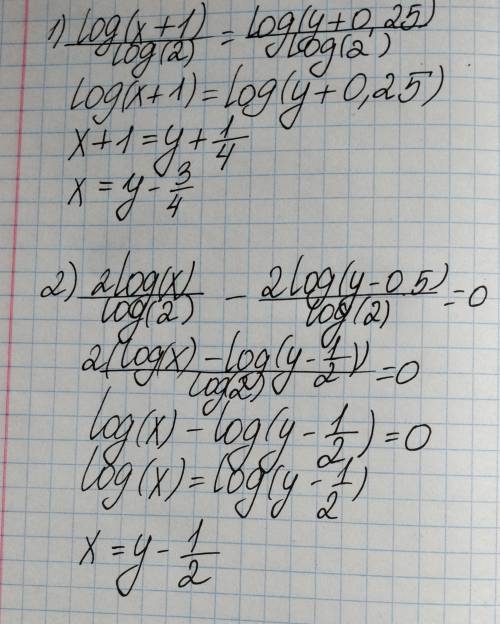 1) log(x+1)/log(2) = log(y+0,25)/log(2)
log(x+1)=log(y+0,25)
x+1=y+1/4
x=y-3/4
2) 2log(x)/log(2) - 2log(y-0.5)/log(2)=0
2(log(x)-log(y-1/2))/log(2)=0
log(x)-log(y-1/2)=0
log(x)=log(y-1/2)
x=y-1/2